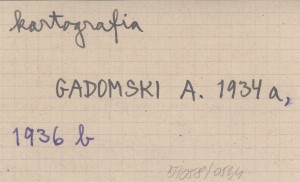 kartografia
GADOMSKI A. 1934 a,
1936 b